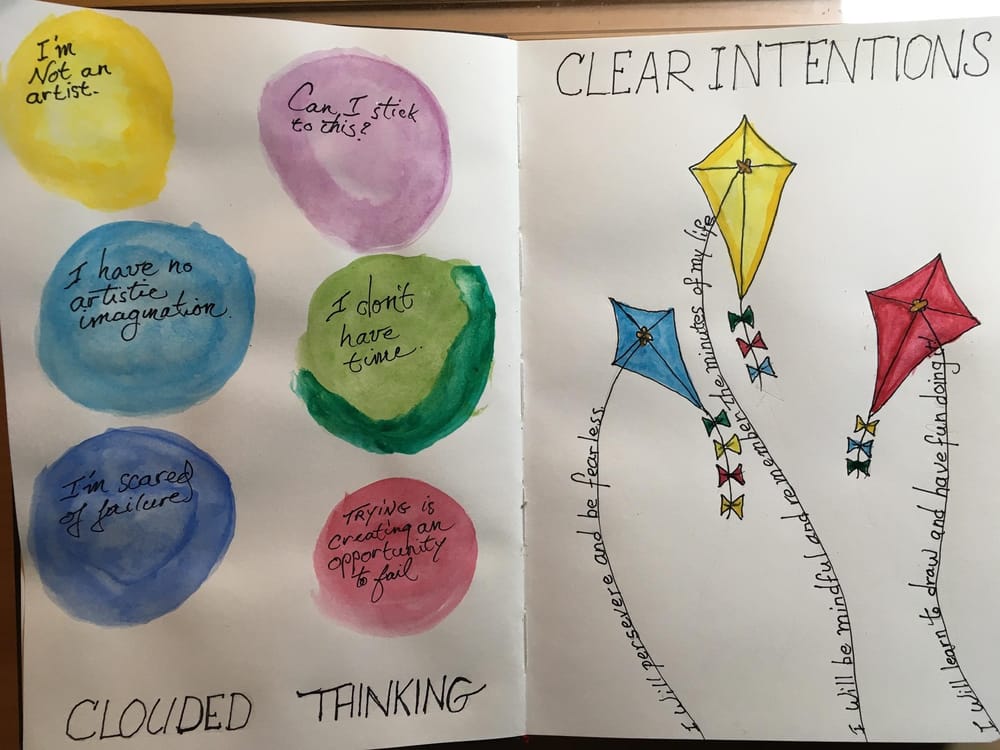 I'm
Not an
artist.
Can I stick
to this?
I have no
artistic
imagination.
I don't
have
time.
I'm scared
of failure
TRYING is
creating an
opportunity
to fail
CLOUDED THINKING
CLEAR INTENTIONS
I will persevere and be fearless
I will be mindful and remember the minutes of my life
I will learn to draw and have fun doing it